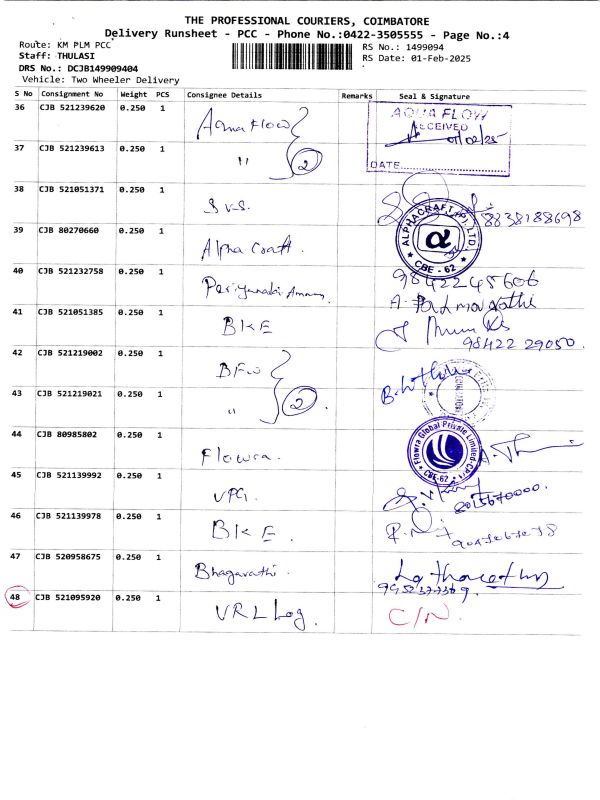 THE PROFESSIONAL COURIERS, COIMBATORE
Delivery Runsheet - PCC - Phone No.:0422-3505555 - Page No.:4
Route: KM PLM PCC
RS No.: 1499094
Staff: THULASI
RS Date: 01-Feb-2025
DRS No.: DCJB149909404
Vehicle: Two Wheeler Delivery
S No Consignment No Weight PCS Consignee Details Remarks Seal & Signature
36 CJB 521239620 0.250 1 Aqua Flow
AQUA FLOW
RECEIVED
01/02/25
DATE
37 CJB 521239613 0.250 1 " 2
38 CJB 521051371 0.250 1 S.V.S. 8838188698
39 CJB 80270660 0.250 1 Alpha Craft.
ALPHACRAFT (P) LTD.
α
★ CBE - 62 ★
40 CJB 521232758 0.250 1 Periyanaiki Amman 9842245606
A. Padmavathi
41 CJB 521051385 0.250 1 BKE
98422 29050.
42 CJB 521219002 0.250 1 BFW
43 CJB 521219021 0.250 1 " 2.
44 CJB 80985802 0.250 1 Flowra.
Flowra Global Private Limited
CBE-62
45 CJB 521139992 0.250 1 VPG.
46 CJB 521139978 0.250 1 BKE.
47 CJB 520958675 0.250 1 Bhagavathi.
48 CJB 521095920 0.250 1 VRL Log. C/N.